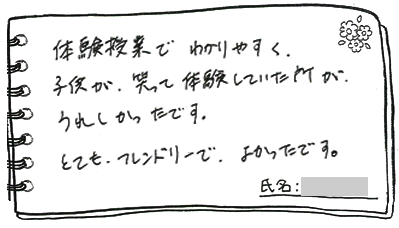 体験授業で わかりやすく、
子供が、笑って体験していた所が、
うれしかったです。
とても、フレンドリーで、よかったです。
氏名: